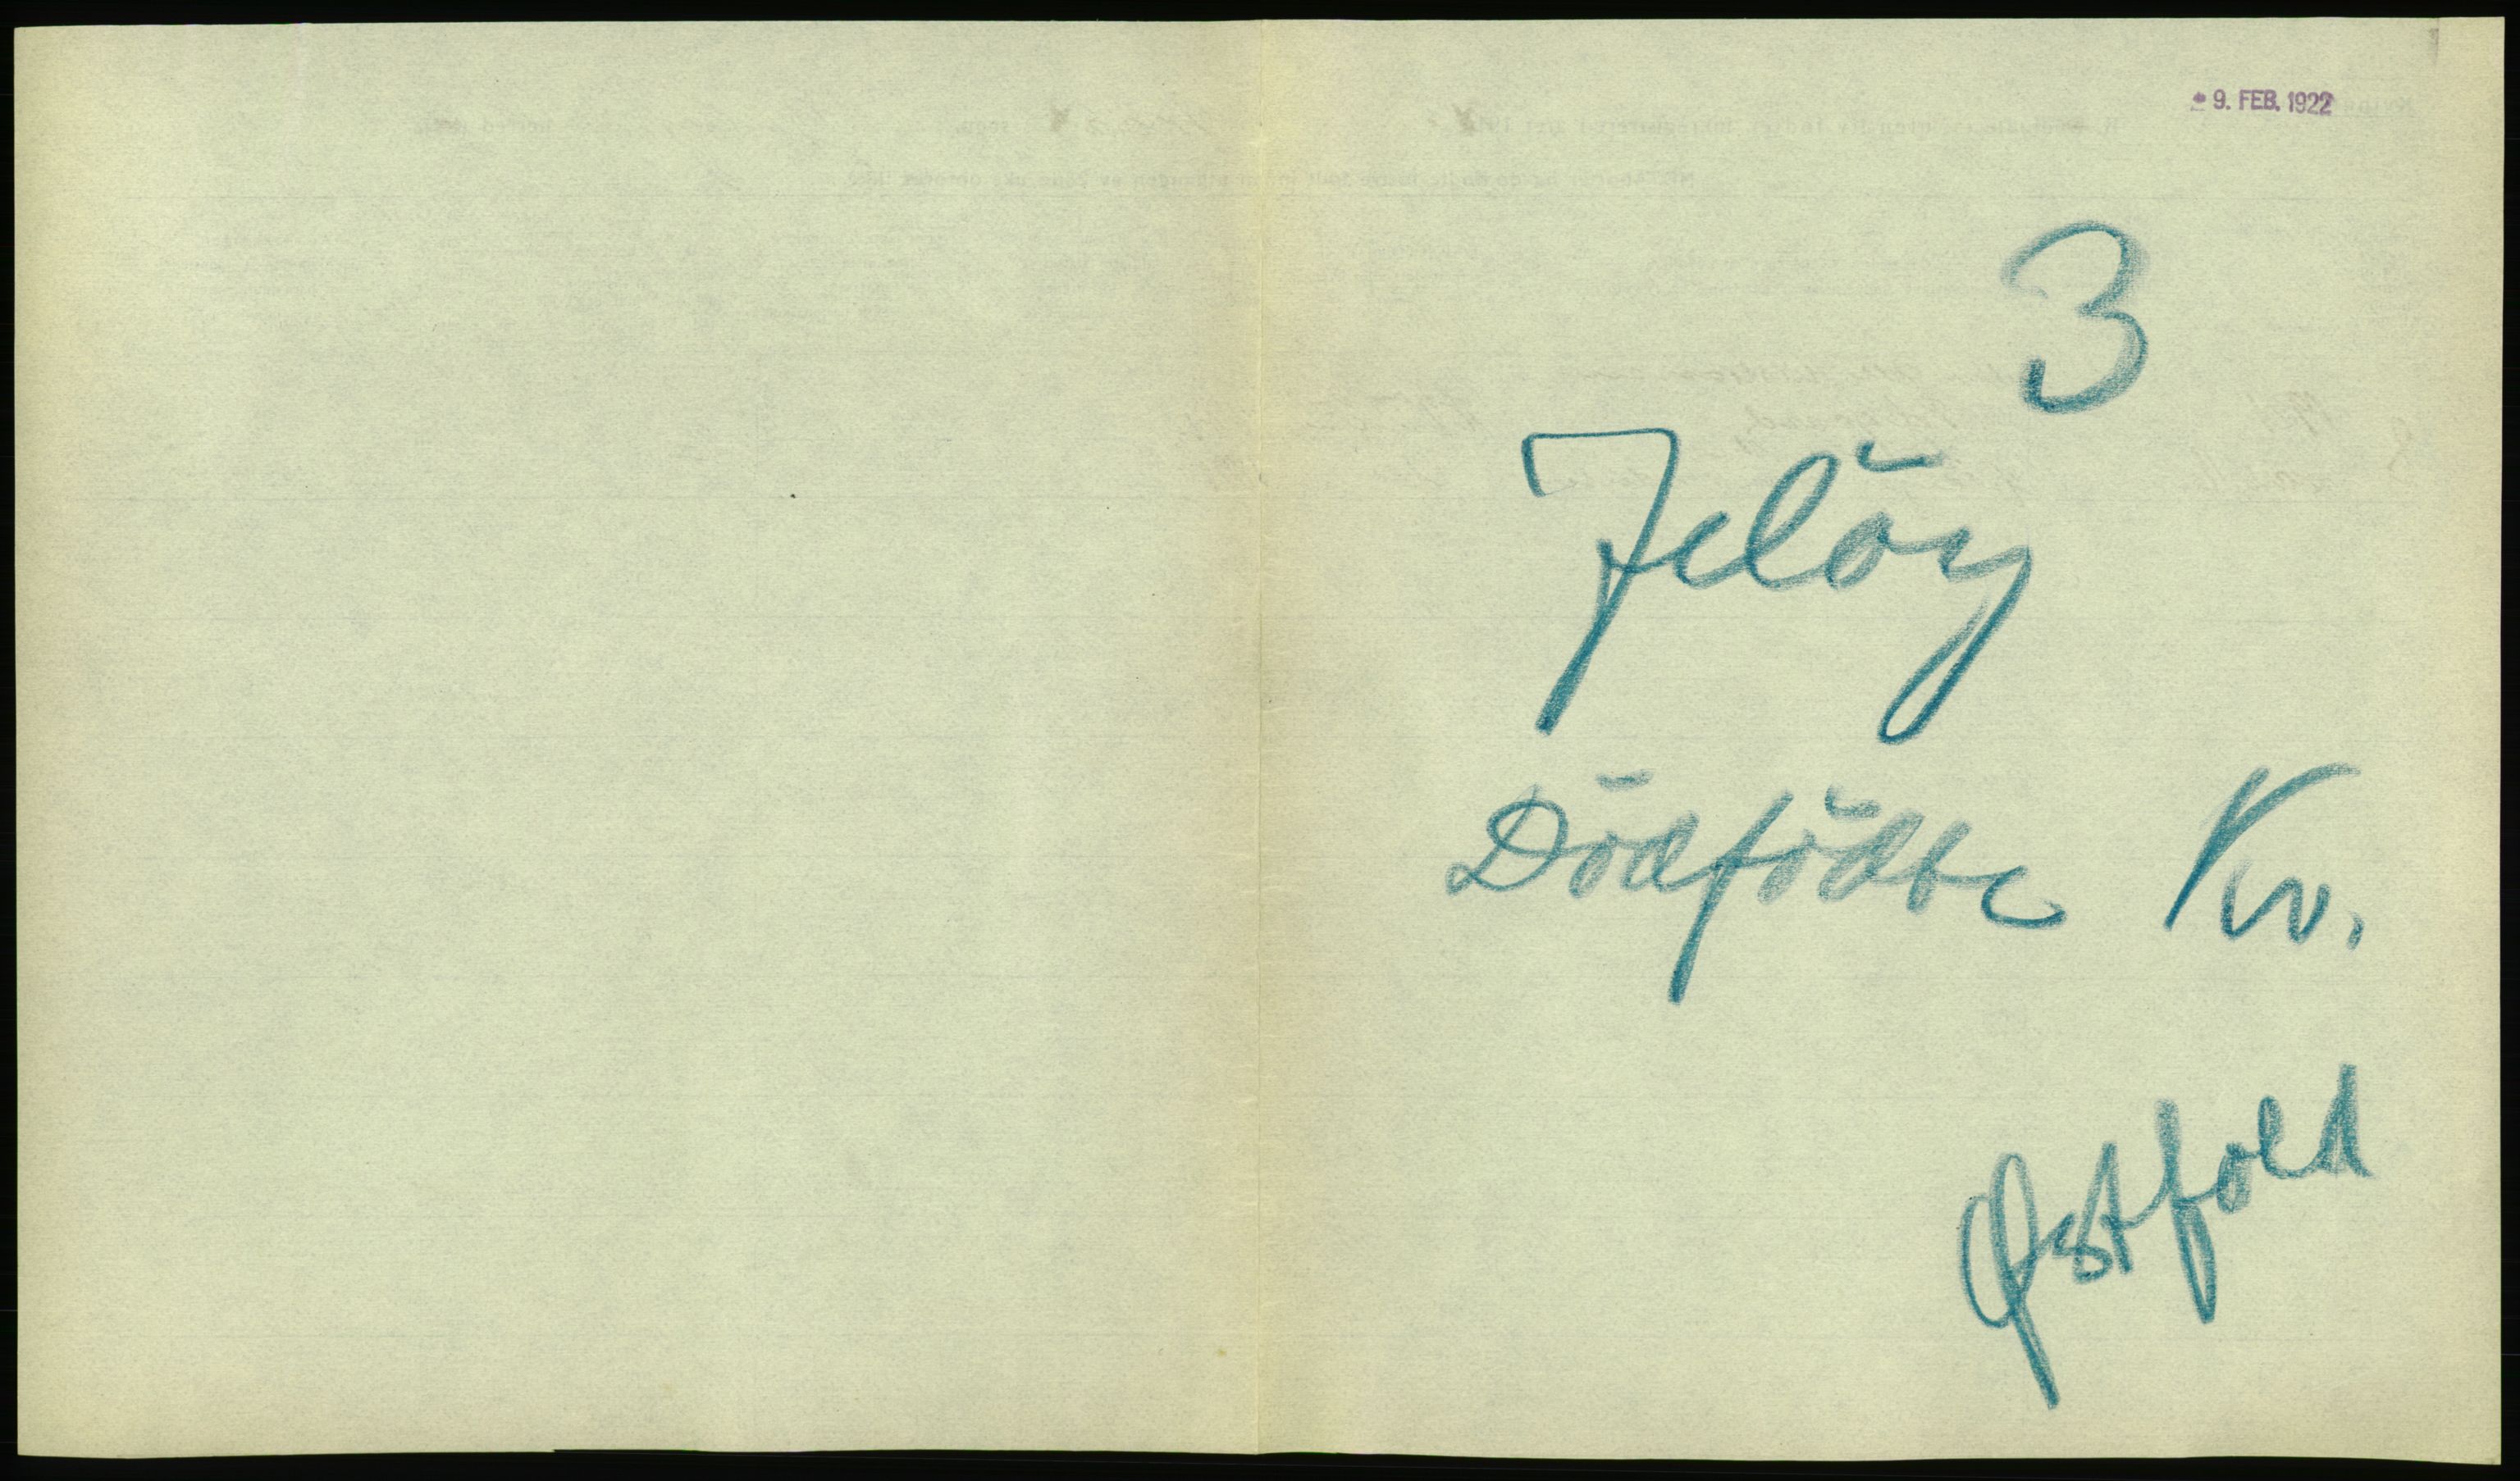 9. FEB. 1922
3
Jelöy
Dödfödte Kv.
Østfold